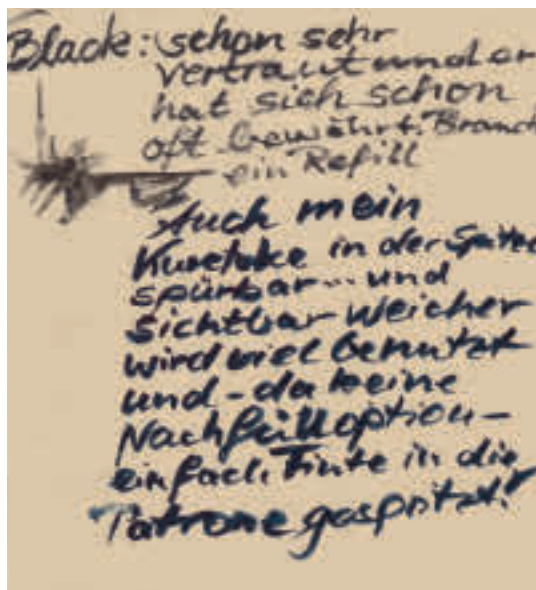 Black: schon sehr
vertraut und er
hat sich schon
oft bewährt. Brauch
ein Refill
Auch mein
Kuretake in der Spitze
spürbar... und
sichtbar weicher
wird viel benutzt
und - da keine
Nachfülloption -
einfach Tinte in die
Patrone gespritzt!